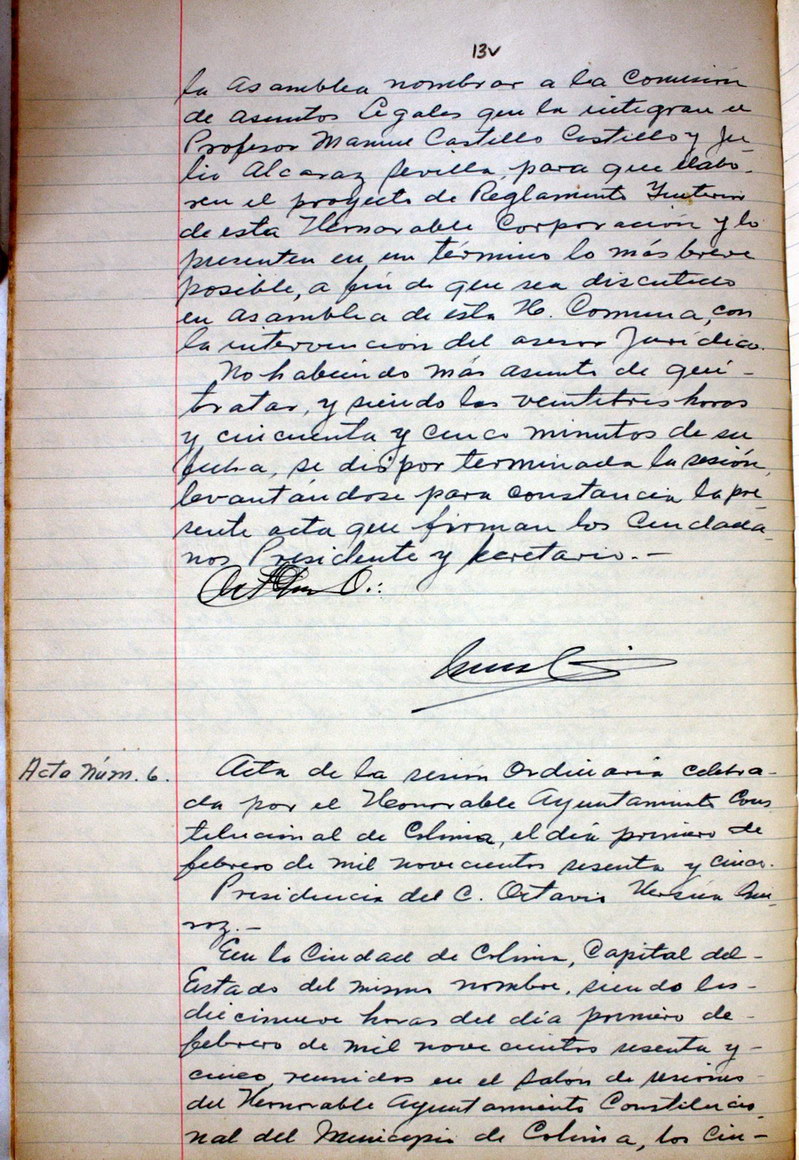 13v
la asamblea nombrar a la Comisión
de asuntos Legales que la integran el
Profesor Manuel Castillo Castillo y Ju-
lio Alcaraz Sevilla, para que elabo-
ren el proyecto de Reglamento Interior
de esta Honorable Corporación y lo
presenten en un término lo más breve
posible, a fin de que sea discutido
en asamblea de esta H. Comuna, con
la intervención del asesor Jurídico.
No habiendo más asunto de qué -
tratar, y siendo las veintitres horas
y cincuenta y cinco minutos de su
fecha, se dió por terminada la sesión,
levantándose para constancia la pre
sente acta que firman los Ciudada-
nos Presidente y secretario. -
Acta Núm. 6.
Acta de la sesión Ordinaria celebra-
da por el Honorable Ayuntamiento Cons
titucional de Colima, el día primero de
febrero de mil novecientos sesenta y cinco.
Presidencia del C. Octavio
roz. -
En la Ciudad de Colima, Capital del -
Estado del mismo nombre, siendo las -
diecinueve horas del día primero de -
febrero de mil novecientos sesenta y -
cinco, reunidos en el salón de sesiones
del Honorable Ayuntamiento Constitucio-
nal del Municipio de Colima, los Ciu-